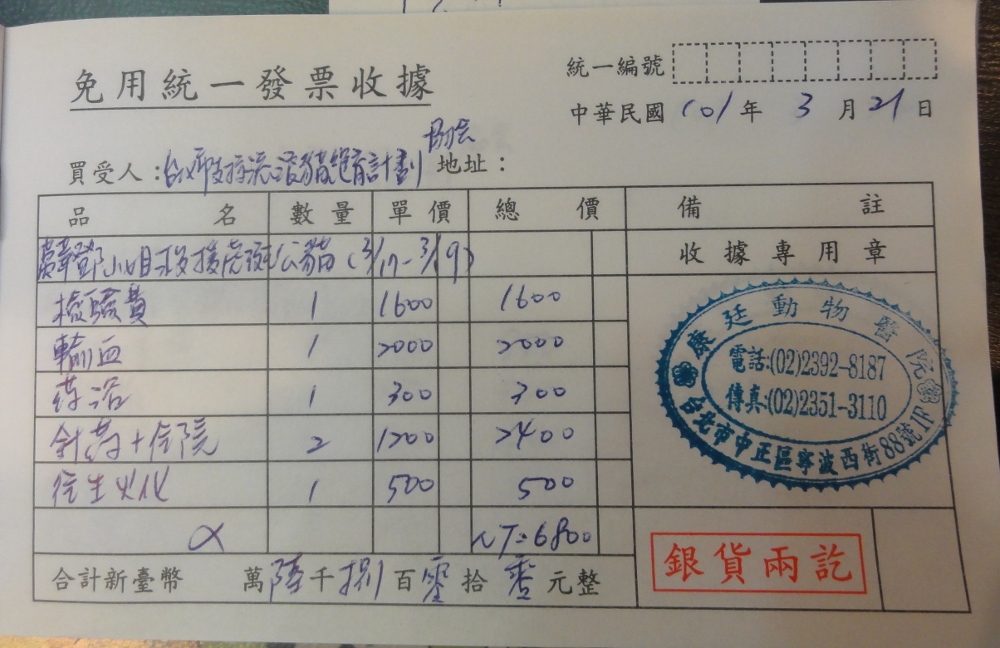 免用統一發票收據
統一編號
中華民國 101 年 3 月 21 日
買受人：台灣認養流浪貓絕育計劃協会 地址：
品名 數量 單價 總價 備註
鄧小姐救援虎斑公貓 (3/17-3/19) 收據專用章
檢驗費 1 1600 1600
輸血 1 2000 2000
葯浴 1 300 300
針葯+住院 2 1200 2400
往生火化 1 500 500
NT=6800
合計新臺幣 萬 陸 千 捌 百 零 拾 零 元整
康廷動物醫院
電話:(02)2392-8187
傳真:(02)2351-3110
台北市中正區寧波西街88號1F
銀貨兩訖